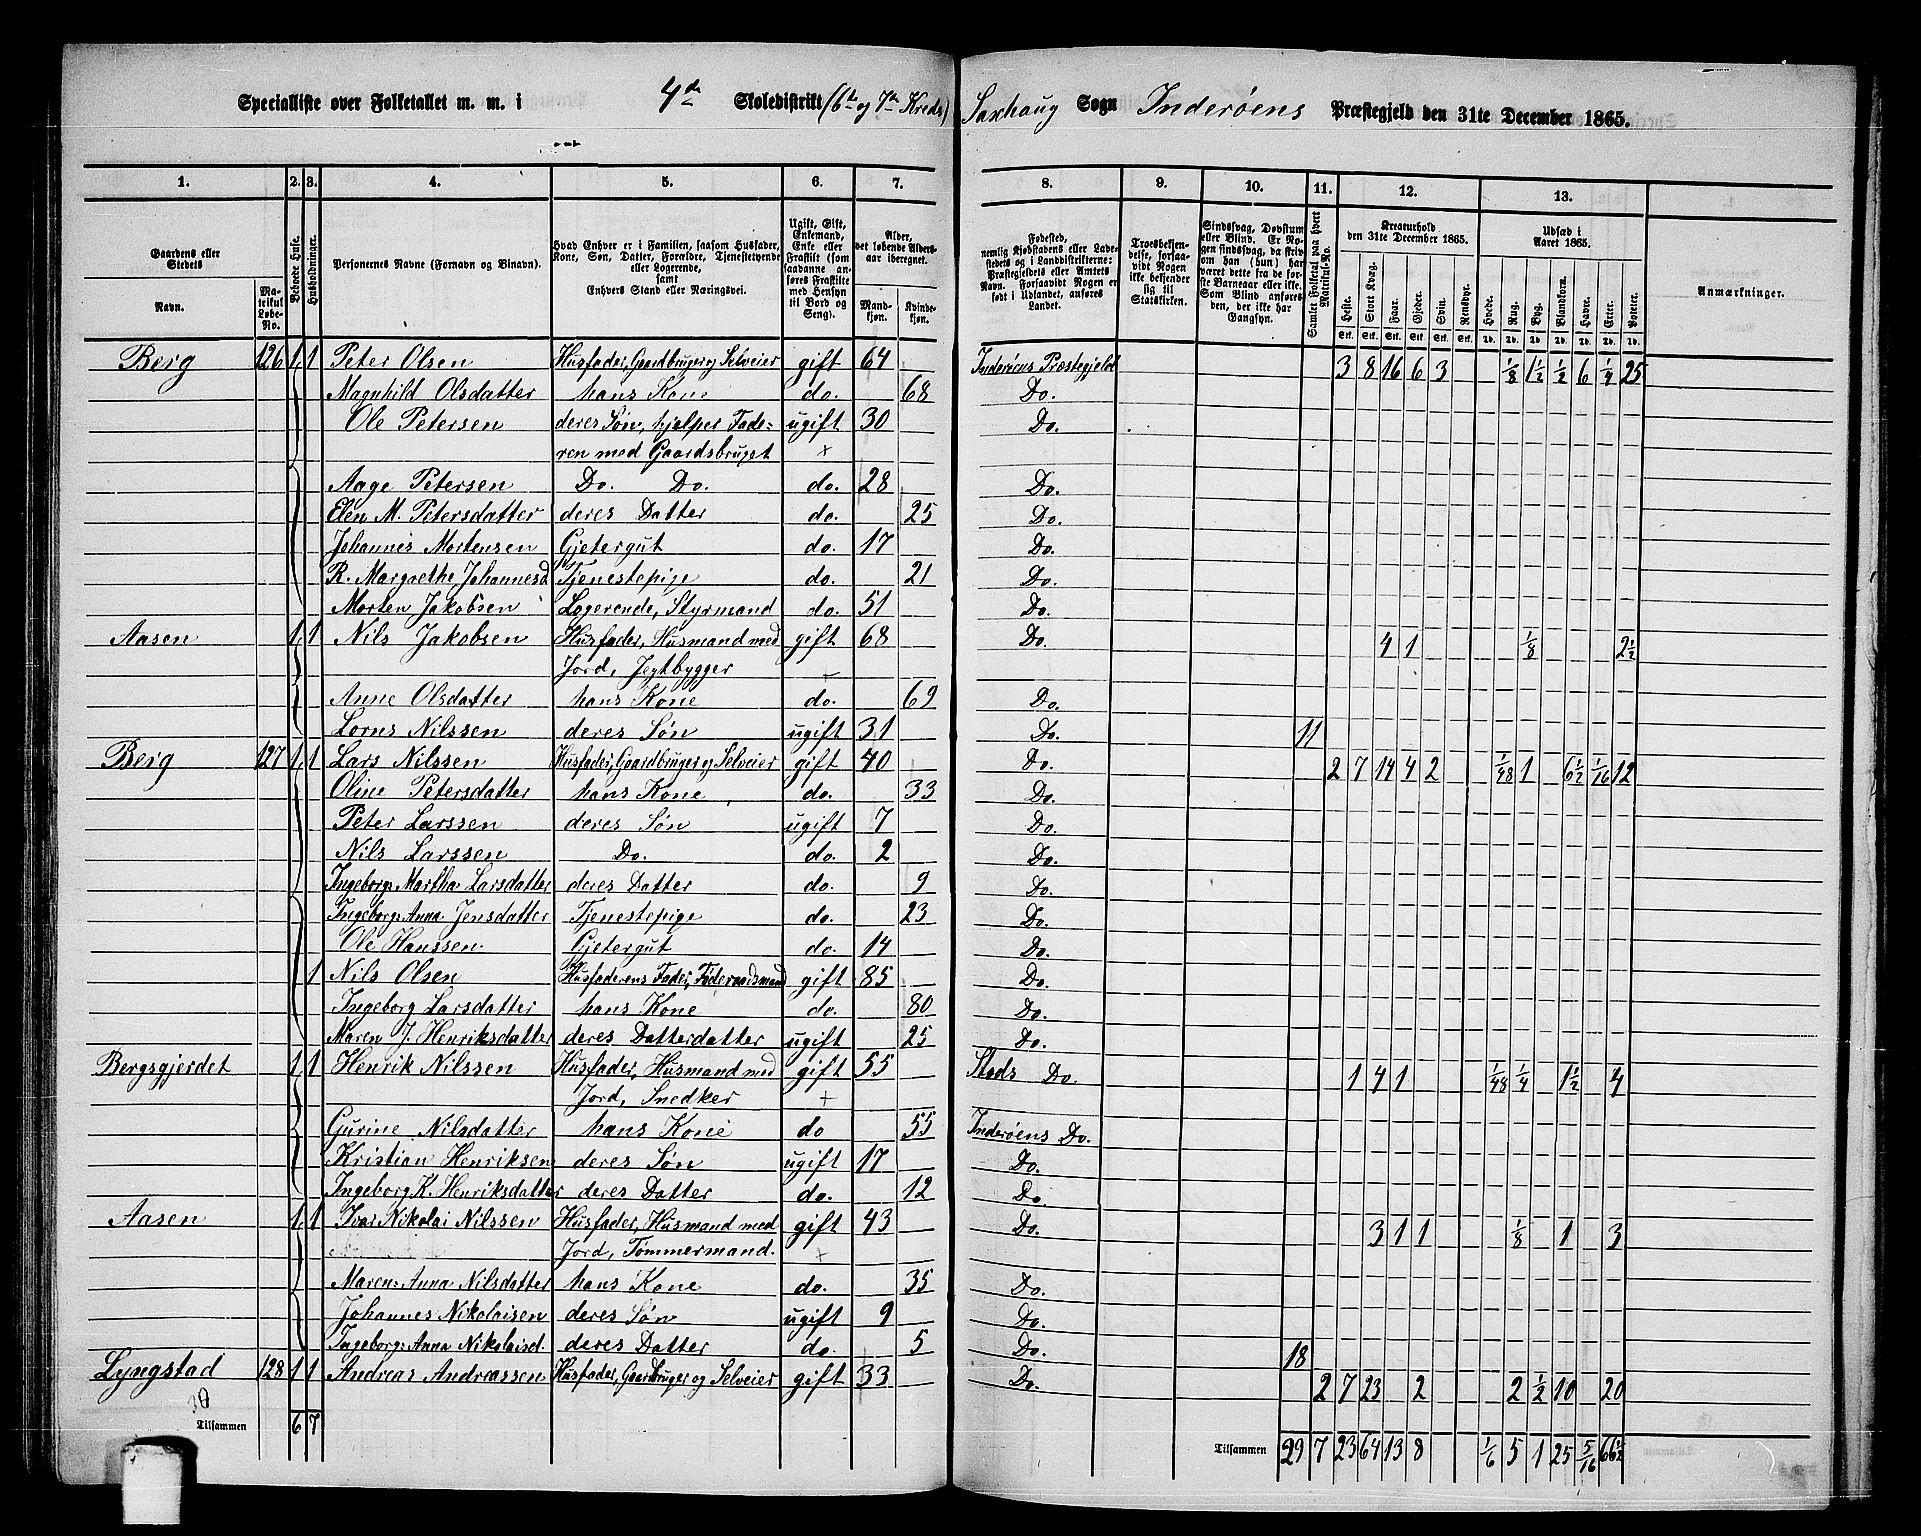 Specialliste over Folketallet m. m. i 4de Skoledistrikt (6te og 7de Kreds) Saxhaug Sogn Inderøens Præstegjeld den 31te December 1865.
1. 2. 3. 4. 5. 6. 7. 8. 9. 10. 11. 12. 13.
Gaardens eller Stedets
Navn.
Matrikul Løbe-No.
Beboede Huse.
Husholdninger.
Personernes Navne (Fornavn og Binavn).
Hvad Enhver er i Familien, saasom Husfader, Kone, Søn, Datter, Forældre, Tjenestetyende eller Logerende, samt Enhvers Stand eller Næringsvei.
Ugift, Gift, Enkemand, Enke eller Fraskilt (som saadanne anføres Fraskilte med Hensyn til Bord og Seng).
Alder, det løbende Aldersaar iberegnet.
Mandkjøn.
Kvindekjøn.
Fødested, nemlig Kjøbstadens eller Ladestedets og i Landdistrikterne: Præstegjeldets eller Amtets Navn. Forsaavidt Nogen er født i Udlandet, anføres Landet.
Troesbekjendelse, forsaavidt Nogen ikke bekjender sig til Statskirken.
Sindssvag, Døvstum eller Blind. Er Nogen sindssvag, da skrives om han (hun) har været dette fra de første Barneaar eller ikke. Som Blind anføres den, der ikke har Gangsyn.
Samlet Folketal paa hvert Matrikul-No.
Kreaturhold den 31te December 1865.
Heste. Stort Kvæg. Faar. Gjeder. Svin. Rensdyr.
Udsæd i Aaret 1865.
Hvede. Rug. Byg. Blandkorn. Havre. Erter. Poteter.
Anmærkninger.
Berg 126 1 1 Peter Olsen Husfader, Gaardbruger og Selveier gift 64 Inderøens Præstegjeld 3 8 16 6 3 1/8 1 1/2 1/2 6 1/4 25
Magnhild Olsdatter hans Kone do. 68 Do.
Ole Petersen deres Søn, hjelper Fade- ugift 30 Do.
ren med Gaardsbruget +
Aage Petersen Do. Do. do. 28 Do.
Elen M. Petersdatter deres Datter do. 25 Do.
Johannes Mortensen Gjetergut do. 17 Do.
R. Margrethe Johannesd Tjenestepige do. 21 Do.
Morten Jakobsen Logerende, Styrmand do. 51 Do.
Aasen 1 1 Nils Jakobsen Husfader, Husmand med gift 68 Do. 4 1 1/8 2 1/2
Jord, Jegtbygger
Anne Olsdatter hans Kone do. 69 Do.
Lorns Nilssen deres Søn ugift 31 Do. 11
Berg 127 1 1 Lars Nilssen Husfader, Gaardbruger og Selveier gift 40 Do. 2 7 14 4 2 1/48 1 6 1/2 1/16 12
Oline Petersdatter hans Kone do. 33 Do.
Peter Larssen deres Søn ugift 7 Do.
Nils Larssen Do. do. 2 Do.
Ingeborg Martha Larsdatter deres Datter do. 9 Do.
Ingeborg Anna Jensdatter Tjenestepige do. 23 Do.
Ole Hanssen Gjetergut do. 14 Do.
1 Nils Olsen Husfaderens Fader, Føderaadsmand gift 85 Do.
Ingeborg Larsdatter hans Kone do. 80 Do.
Maren J. Henriksdatter deres Datterdatter ugift 25 Do.
Bergsgjerdet 1 1 Henrik Nilssen Husfader, Husmand med gift 55 Stods Do. 1 4 1 1/48 1/4 1 1/2 4
Jord, Snedker +
Gurine Nilsdatter hans Kone do 55 Inderøens Do.
Kristian Henriksen deres Søn ugift 17 Do.
Ingeborg K. Henriksdatter deres Datter do. 12 Do
Aasen 1 1 Ivar Nikolai Nilssen Husfader, Husmand med gift 43 Do. 3 1 1 1/8 1 3
Jord, Tømmermand. +
Maren Anna Nilsdatter hans Kone do. 35 Do.
Johannes Nikolaisen deres Søn ugift 9 Do.
Ingeborg Anna Nikolaisd. deres Datter do. 5 Do. 18
Lyngstad 128 1 1 Andreas Andreassen Husfader, Gaardbruger og Selveier gift 33 Do. 2 7 23 2 2 1/2 10 20
Tilsammen 6 7 Tilsammen 29 7 23 64 13 8 1/6 5 1 25 5/16 66 1/2